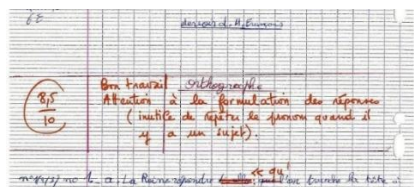 6E
devoirs d. H. Français
8,5
10
Bon travail Orthographe
Attention à la formulation des réponses
(inutile de répéter le pronom quand il
y a un sujet).
1 a, La Reine répondre « qu' tranche la tête